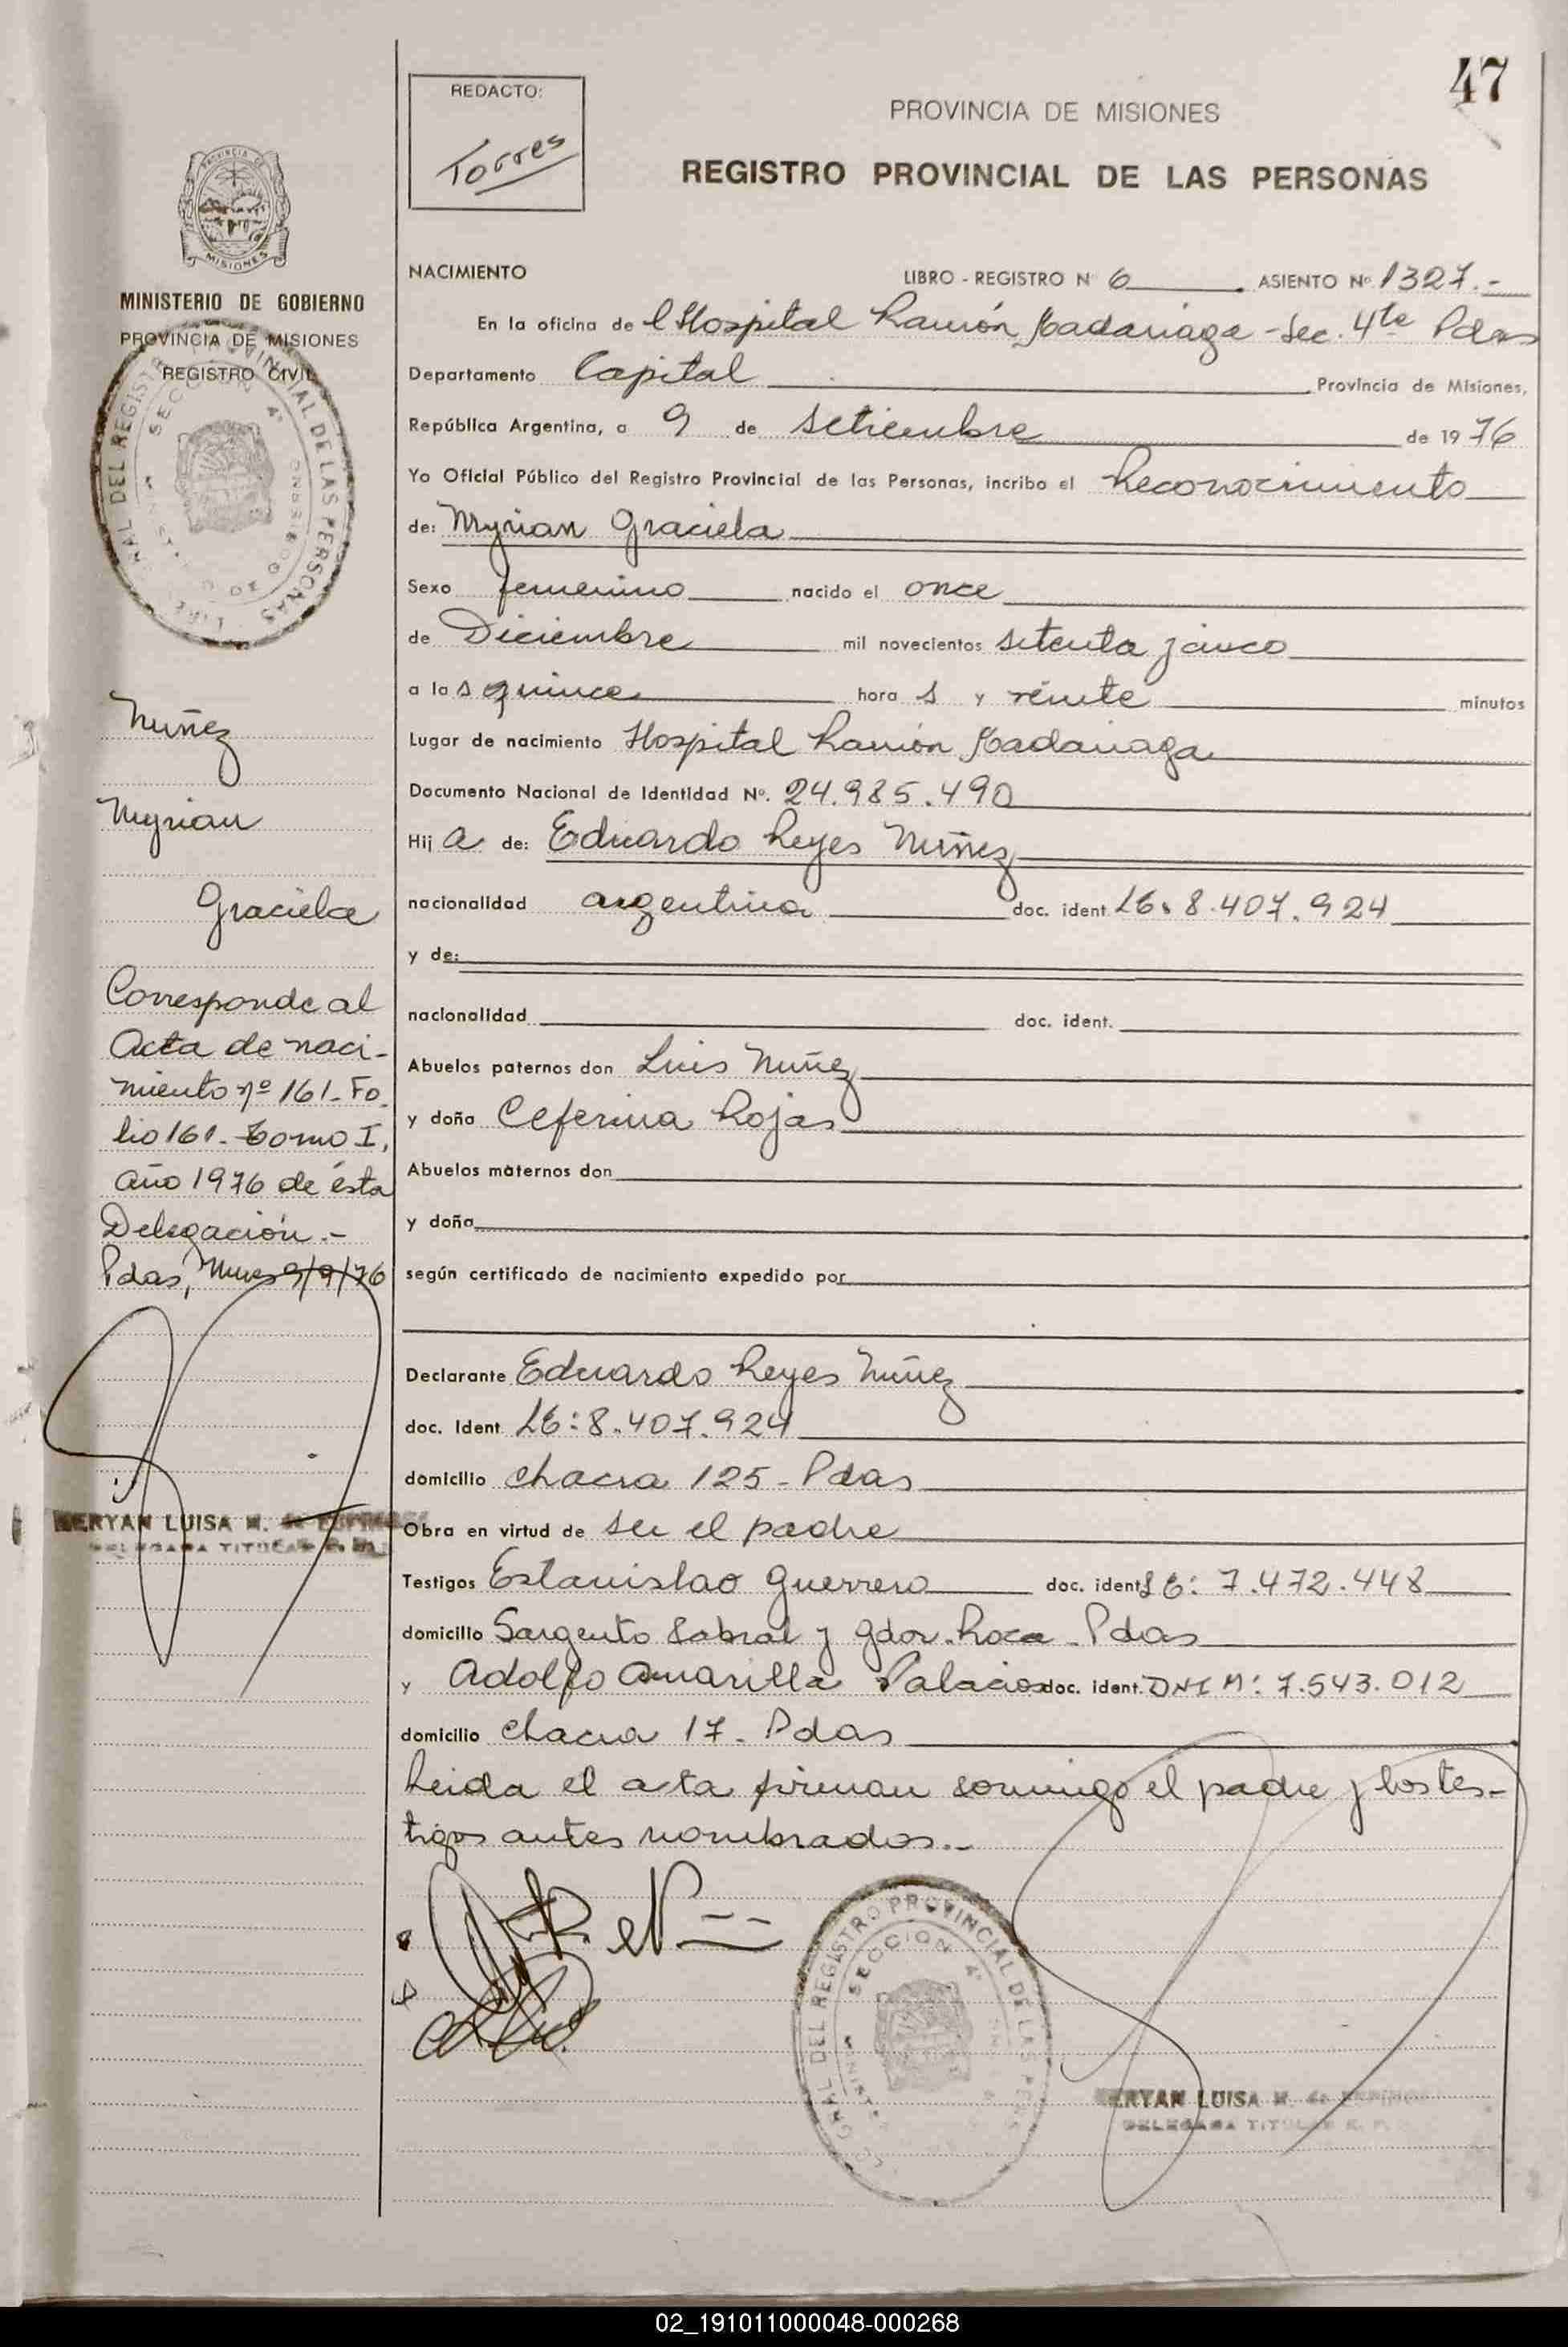 47
REDACTO:
Torres
PROVINCIA DE MISIONES
REGISTRO PROVINCIAL DE LAS PERSONAS
MISIONES
MINISTERIO DE GOBIERNO
PROVINCIA DE MISIONES
REGISTRO CIVIL
NACIMIENTO LIBRO - REGISTRO Nº 6 ASIENTO Nº 1327.-
En la oficina de l Hospital Ramón Madariaga - Sec. 4ta Pdas
Departamento Capital Provincia de Misiones,
República Argentina, a 9 de Setiembre de 1976
Yo Oficial Público del Registro Provincial de las Personas, incribo el Reconocimiento
de: Myrian Graciela
Sexo femenino nacido el once
de Diciembre mil novecientos setenta y cinco
a las quince horas y veinte minutos
Lugar de nacimiento Hospital Ramón Madariaga
Documento Nacional de Identidad Nº. 24.985.490
Hija de: Eduardo Reyes Nuñez
nacionalidad argentina doc. ident LE: 8.407.924
y de:
nacionalidad doc. ident.
Abuelos paternos don Luis Nuñez
y doña Ceferina Rojas
Abuelos maternos don
y doña
según certificado de nacimiento expedido por
Declarante Eduardo Reyes Nuñez
doc. Ident LE: 8.407.924
domicilio chacra 125 - Pdas
Obra en virtud de ser el padre
Testigos Estanislao Guerrero doc. ident LE: 7.472.448
domicilio Sargento Cabral y Gdor. Roca - Pdas
y Adolfo Amarilla Palacios doc. ident. DNI M: 7.543.012
domicilio chacra 17 - Pdas
Leida el acta firman conmigo el padre y los tes-
tigos antes nombrados.-
Nuñez
Myrian
Graciela
Corresponde al
Acta de naci-
miento nº 161- Fo-
lio 161- Tomo I,
año 1976 de ésta
Delegación.-
Pdas, Mnes 9/9/76
LUISA M. de
DELEGADA TITULAR
DEL REGISTRO PROVINCIAL DE LAS PERSONAS
SECCION 4ª
LUISA M. de
DELEGADA TITULAR
02_191011000048-000268